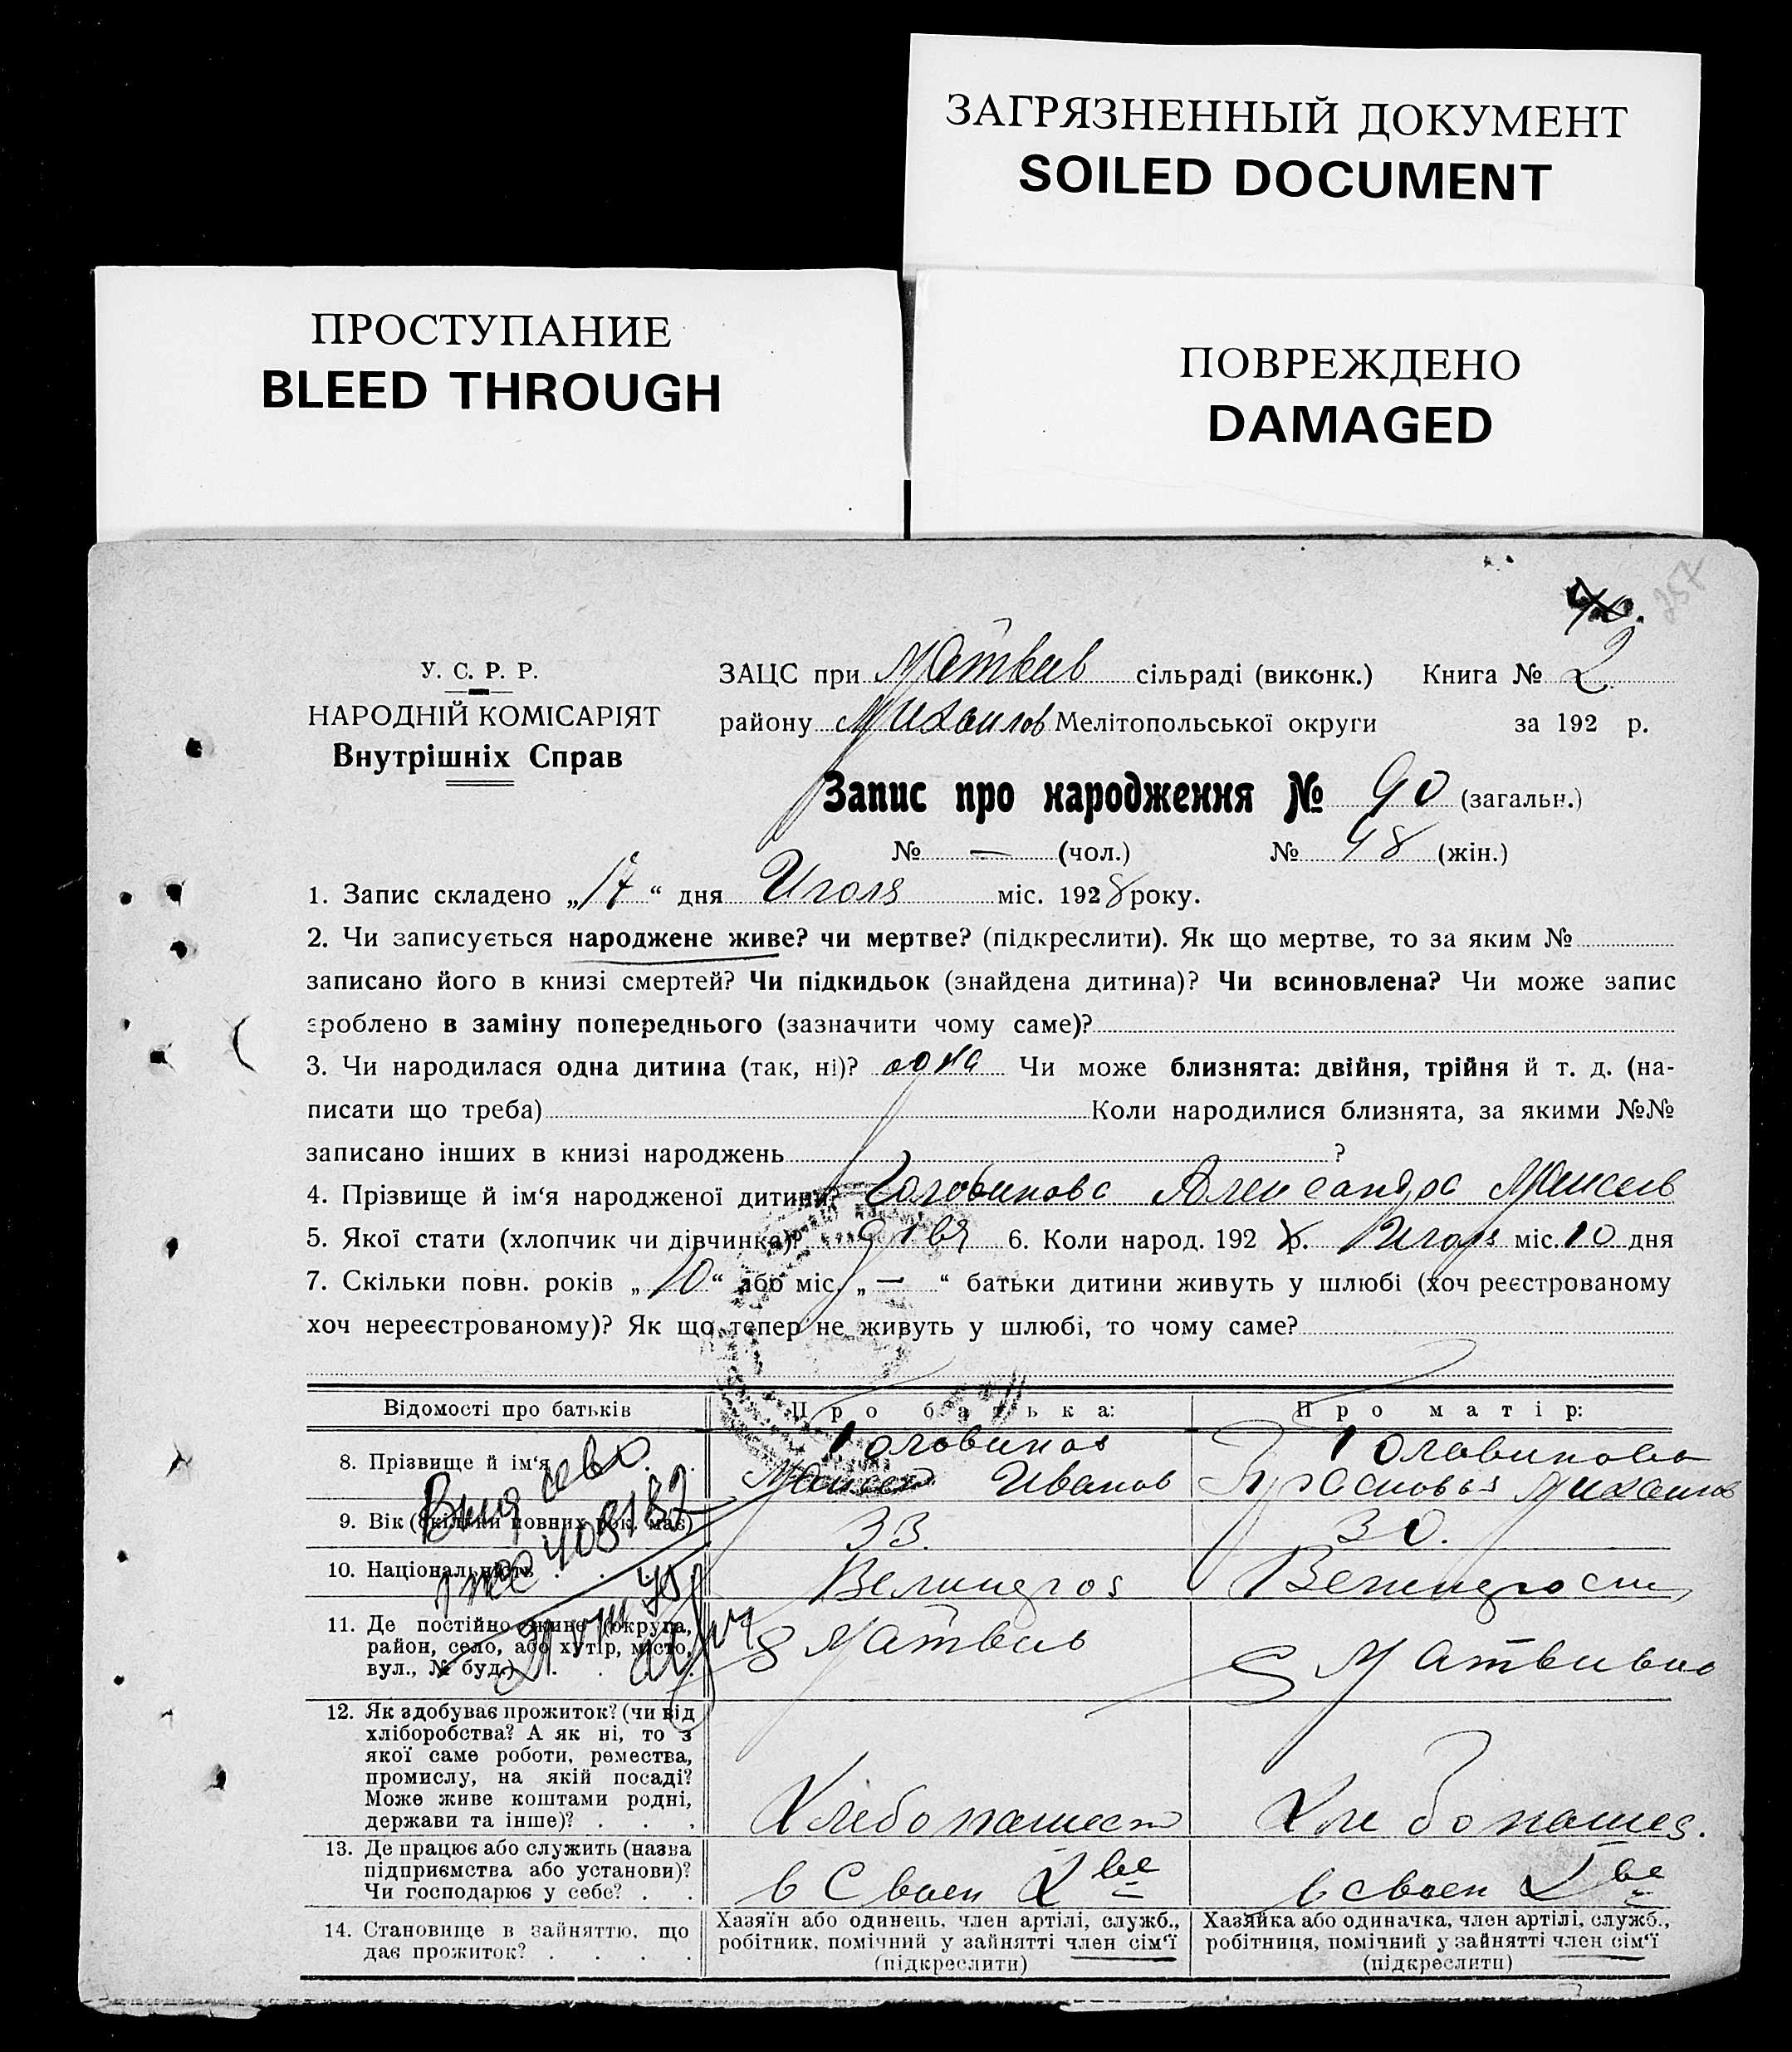 ЗАГРЯЗНЕННЫЙ ДОКУМЕНТ
SOILED DOCUMENT
ПРОСТУПАНИЕ
BLEED THROUGH
ПОВРЕЖДЕНО
DAMAGED
257
У. С. Р. Р.
НАРОДНІЙ КОМІСАРІЯТ
Внутрішніх Справ
ЗАЦС при Матвеев сільраді (виконк.) Книга № 2
району Михайлов Мелітопольської округи за 192 р.
Запис про народження № 90 (загальн.)
№ — (чол.) № 48 (жін.)
1. Запис складено „17“ дня Июля міс. 1928 року.
2. Чи записується народжене живе? чи мертве? (підкреслити). Як що мертве, то за яким №
записано його в книзі смертей? Чи підкидьок (знайдена дитина)? Чи всиновлена? Чи може запис
зроблено в заміну попереднього (зазначити чому саме)?
3. Чи народилася одна дитина (так, ні)? одна Чи може близнята: двійня, трійня й т. д. (на-
писати що треба) Коли народилися близнята, за якими №№
записано інших в книзі народжень ?
4. Прізвище й ім‘я народженої дитини? Головинова Александра Моисеев
5. Якої стати (хлопчик чи дівчинка)? 6. Коли народ. 192 р. Июля міс. 10 дня
7. Скільки повн. років „10“ або міс. „—“ батьки дитини живуть у шлюбі (хоч реєстрованому
хоч нереєстрованому)? Як що тепер не живуть у шлюбі, то чому саме?
Відомості про батьків Про батька: Про матір:
8. Прізвище й ім‘я . Головинов Моисей Иванов Головинова Михайлов
9. Вік (скільки повних рок. має) 33. 30.
10. Національність . Великорос
11. Де постійно живе (округа,
район, село, або хутір, місто,
вул., № буд.) . . . .
S Матвеев S Матвеевка
408182
12. Як здобуває прожиток? (чи від
хліборобства? А як ні, то з
якої саме роботи, ремества,
промислу, на якій посаді?
Може живе коштами родні,
держави та інше)? . . .
Хлебопашест Хлебопашес.
13. Де працює або служить (назва
підприємства або установи)?
Чи господарює у себе? . .
в своем Хве в своем Хве
14. Становище в зайняттю, що
дає прожиток? . . . .
Хазяїн або одинець, член артілі, служб.,
робітник, помічний у зайнятті член сім‘ї
(підкреслити)
Хазяйка або одиначка, член артілі, служб.,
робітниця, помічний у зайнятті член сім‘ї
(підкреслити)